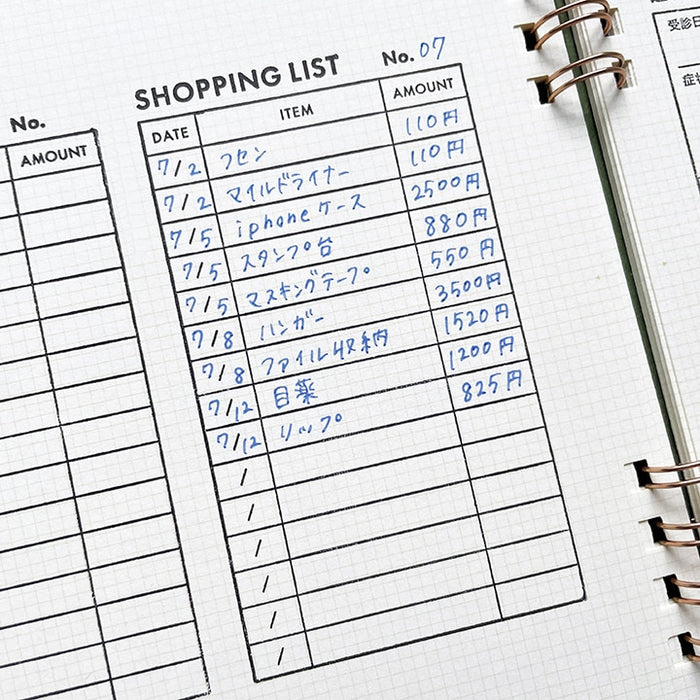 SHOPPING LIST No. 07
DATE ITEM AMOUNT
7/2 フセン 110円
7/2 マイルドライナー 110円
7/5 iphoneケース 2500円
7/5 スタンプ台 880円
7/5 マスキングテープ 550円
7/8 ハンガー 3500円
7/8 ファイル収納 1520円
7/12 目薬 1200円
7/12 リップ 825円
/
/
/
/
/
/
No.
AMOUNT
受診日
症状